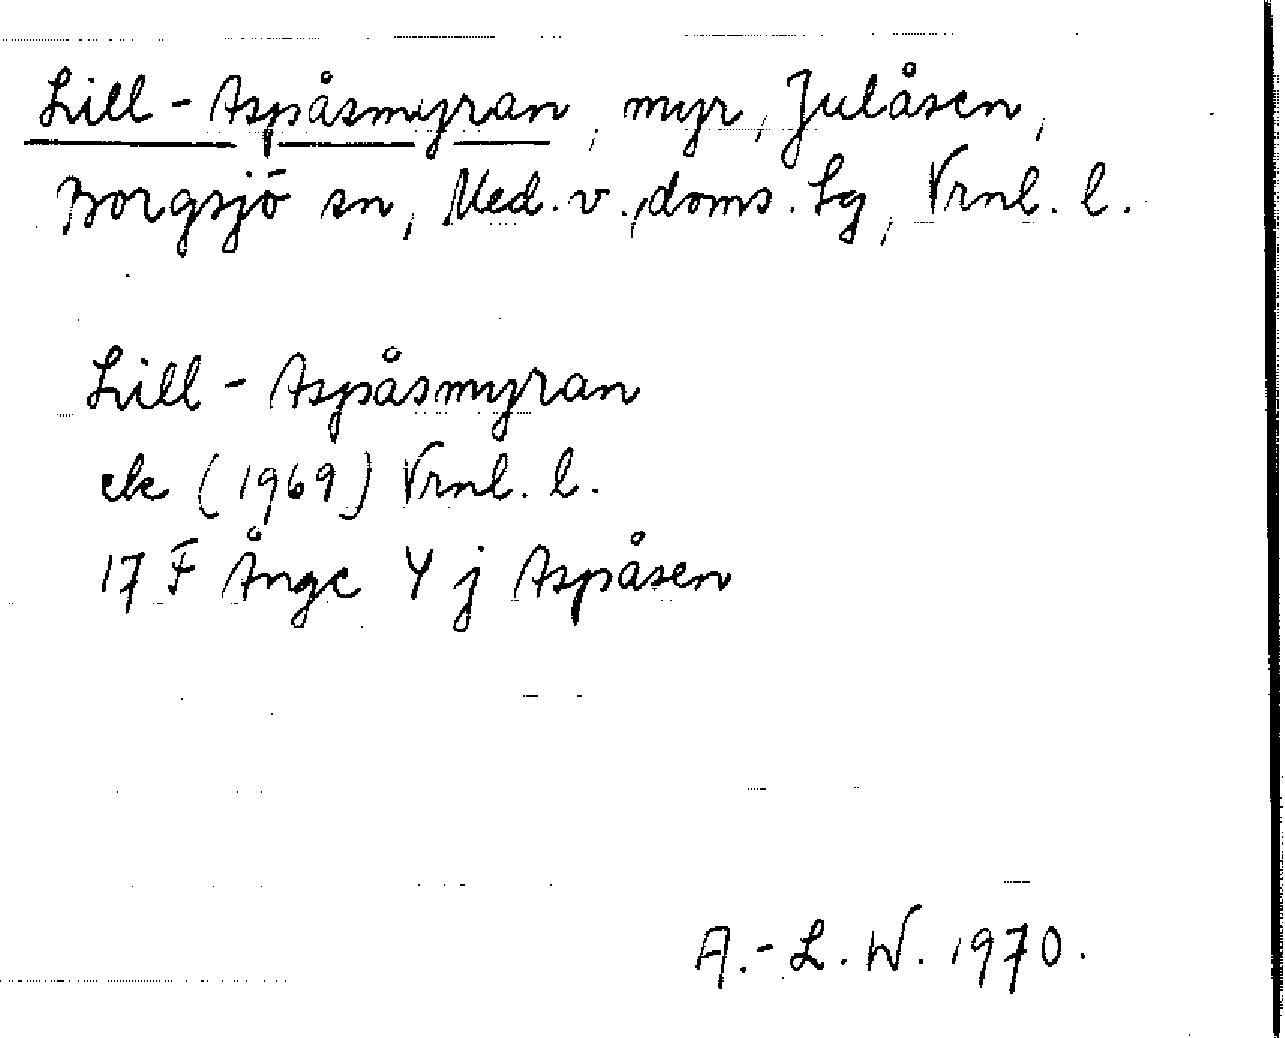 Lill-Aspåsmyran, myr, Julåsen,
Borgsjö sn, Med. v., doms. Lg, Vrnl. l.
Lill-Aspåsmyran
ek (1969) Vrnl. l.
17 F Ånge 4 j Aspåsen
A.-L. W. 1970.